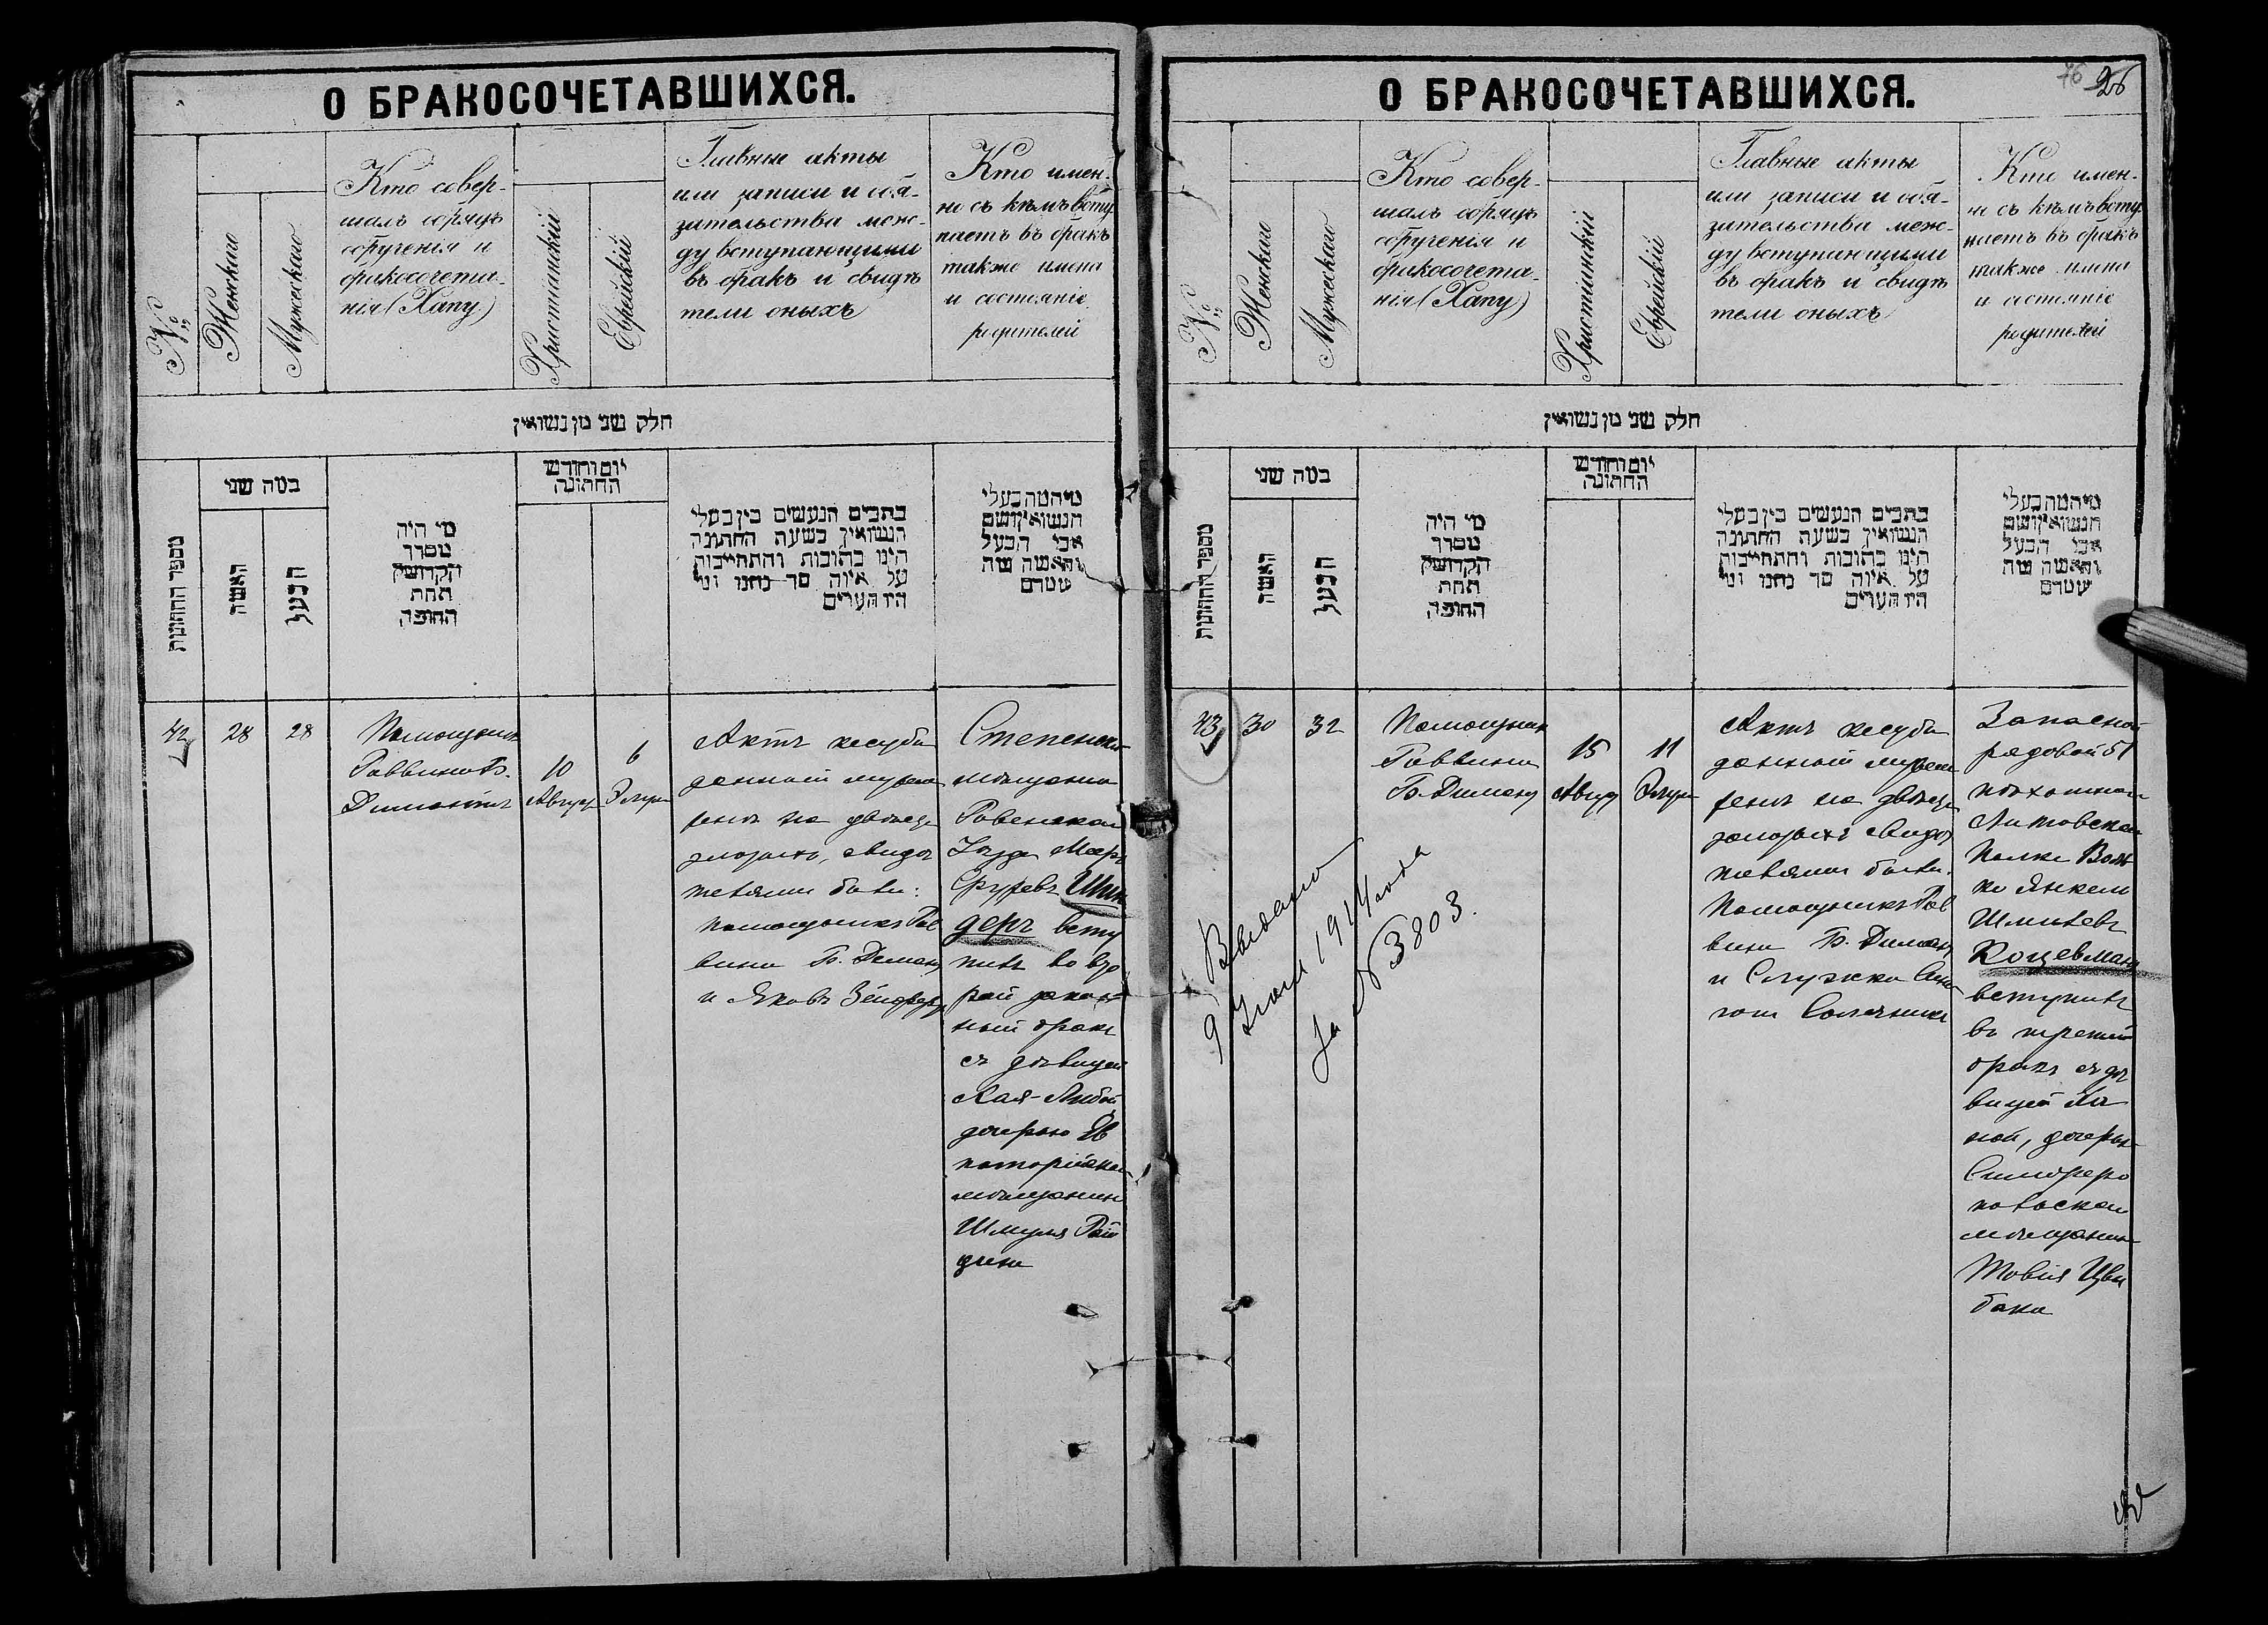 О БРАКОСОЧЕТАВШИХСЯ.
№
Женскаго
Мужескаго
Кто совер-
шалъ обрядъ
обрученія и
бракосочета-
нія (Хапу)
Христіанскій
Еврейскій
Главные акты
или записи и обя-
зательства меж-
ду вступающими
въ бракъ и свидѣ
тели оныхъ
Кто имен-
но съ кѣмъ всту
паетъ въ бракъ
также имена
и состояніе
родителей
חלק שני מן נשואין
מספר החתונות
כמה שני
האשה
הבעל
מי היה
מסדר
הקדושין
תחת
החופה
יום וחודש
החתונה
כתבים הנעשים בין בעלי
הנשואין בשעה החתונה
הינו כתובות והתחייבות
על איזה סך נתנו ומי
היו העדים
מי המה בעלי
הנשואין ושם
אבי הבעל
והאשה
42
28
28
Помощникъ
Раввина Б.
Диманъ
10
Август
6
Элула
Актъ кесуба
данный мужем
женѣ на двѣсти
злотыхъ, свидѣ
телями были:
помощникъ Рав
вина Б. Диманъ
и Яковъ
Степенскій
мѣщанинъ
Ровенскаго
Уѣзда
Шни
деръ всту
пилъ во вто
рой закон
ный бракъ
съ дѣвицей
Хая-Либой
дочерью Ев
паторійскаго
мѣщанина
Шмуля
О БРАКОСОЧЕТАВШИХСЯ.
76 26
№
Женскаго
Мужескаго
Кто совер-
шалъ обрядъ
обрученія и
бракосочета-
нія (Хапу)
Христіанскій
Еврейскій
Главные акты
или записи и обя-
зательства меж-
ду вступающими
въ бракъ и свидѣ
тели оныхъ
Кто имен-
но съ кѣмъ всту
паетъ въ бракъ
также имена
и состояніе
родителей
חלק שני מן נשואין
מספר החתונות
כמה שני
האשה
הבעל
מי היה
מסדר
הקדושין
תחת
החופה
יום וחודש
החתונה
כתבים הנעשים בין בעלי
הנשואין בשעה החתונה
הינו כתובות והתחייבות
על איזה סך נתנו ומי
היו העדים
מי המה בעלי
הנשואין ושם
אבי הבעל
והאשה
43
30
32
Помощник
Раввина
Б. Диманъ
15
Авгус
11
Элула
Актъ кесуба
данный мужем
женѣ на двѣсти
золотыхъ свидѣ
телями были.
Помощникъ Рав
вина Б. Диманъ
и Служка Сина
гоги
Запасной
рядовой 51
пѣхотнаго
Литовскаго
Полка
Янкель
Шмилевъ
Коцевманъ
вступилъ
въ третій
бракъ съ дѣ
вицей Ха
ной, дочерью
Симферо
польскаго
мѣщанина
Товія Цви
бака
Выдано
9 1914 года
За № 3803.